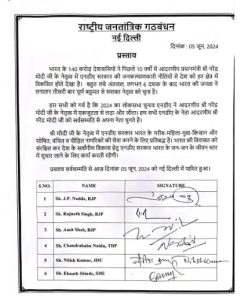 राष्ट्रीय जनतांत्रिक गठबंधन
नई दिल्ली
दिनांक : 05 जून, 2024
प्रस्ताव
भारत के 140 करोड़ देशवासियों ने पिछले 10 वर्षों में आदरणीय प्रधानमंत्री श्री नरेंद्र
मोदी जी के नेतृत्व में एनडीए सरकार की जनकल्याणकारी नीतियों से देश को हर क्षेत्र में
विकसित होते देखा है। बहुत लंबे अंतराल, लगभग 6 दशक के बाद भारत की जनता ने
लगातार तीसरी बार पूर्ण बहुमत से सशक्त नेतृत्व को चुना है।
हम सभी को गर्व है कि 2024 का लोकसभा चुनाव एनडीए ने आदरणीय श्री नरेंद्र
मोदी जी के नेतृत्व में एकजुटता से लड़ा और जीता। हम सभी एनडीए के नेता आदरणीय श्री
नरेंद्र मोदी जी को सर्वसम्मति से अपना नेता चुनते हैं।
श्री मोदी जी के नेतृत्व में एनडीए सरकार भारत के गरीब-महिला-युवा-किसान और
शोषित, वंचित व पीड़ित नागरिकों की सेवा करने के लिए प्रतिबद्ध है। भारत की विरासत को
संरक्षित कर देश के सर्वांगीण विकास हेतु एनडीए सरकार भारत के जन-जन के जीवन स्तर
में सुधार लाने के लिए कार्य करती रहेगी।
प्रस्ताव सर्वसम्मति से आज दिनांक 05 जून, 2024 को नई दिल्ली में पारित हुआ।
S.NO. NAME SIGNATURE
1 Sh. J.P Nadda, BJP
2 Sh. Rajnath Singh, BJP
3 Sh. Amit Shah, BJP
4 Sh. Chandrababu Naidu, TDP
5 Sh. Nitish Kumar, JDU नीतीश कुमार Nitish Kumar
6 Sh. Eknath Shinde, SHS